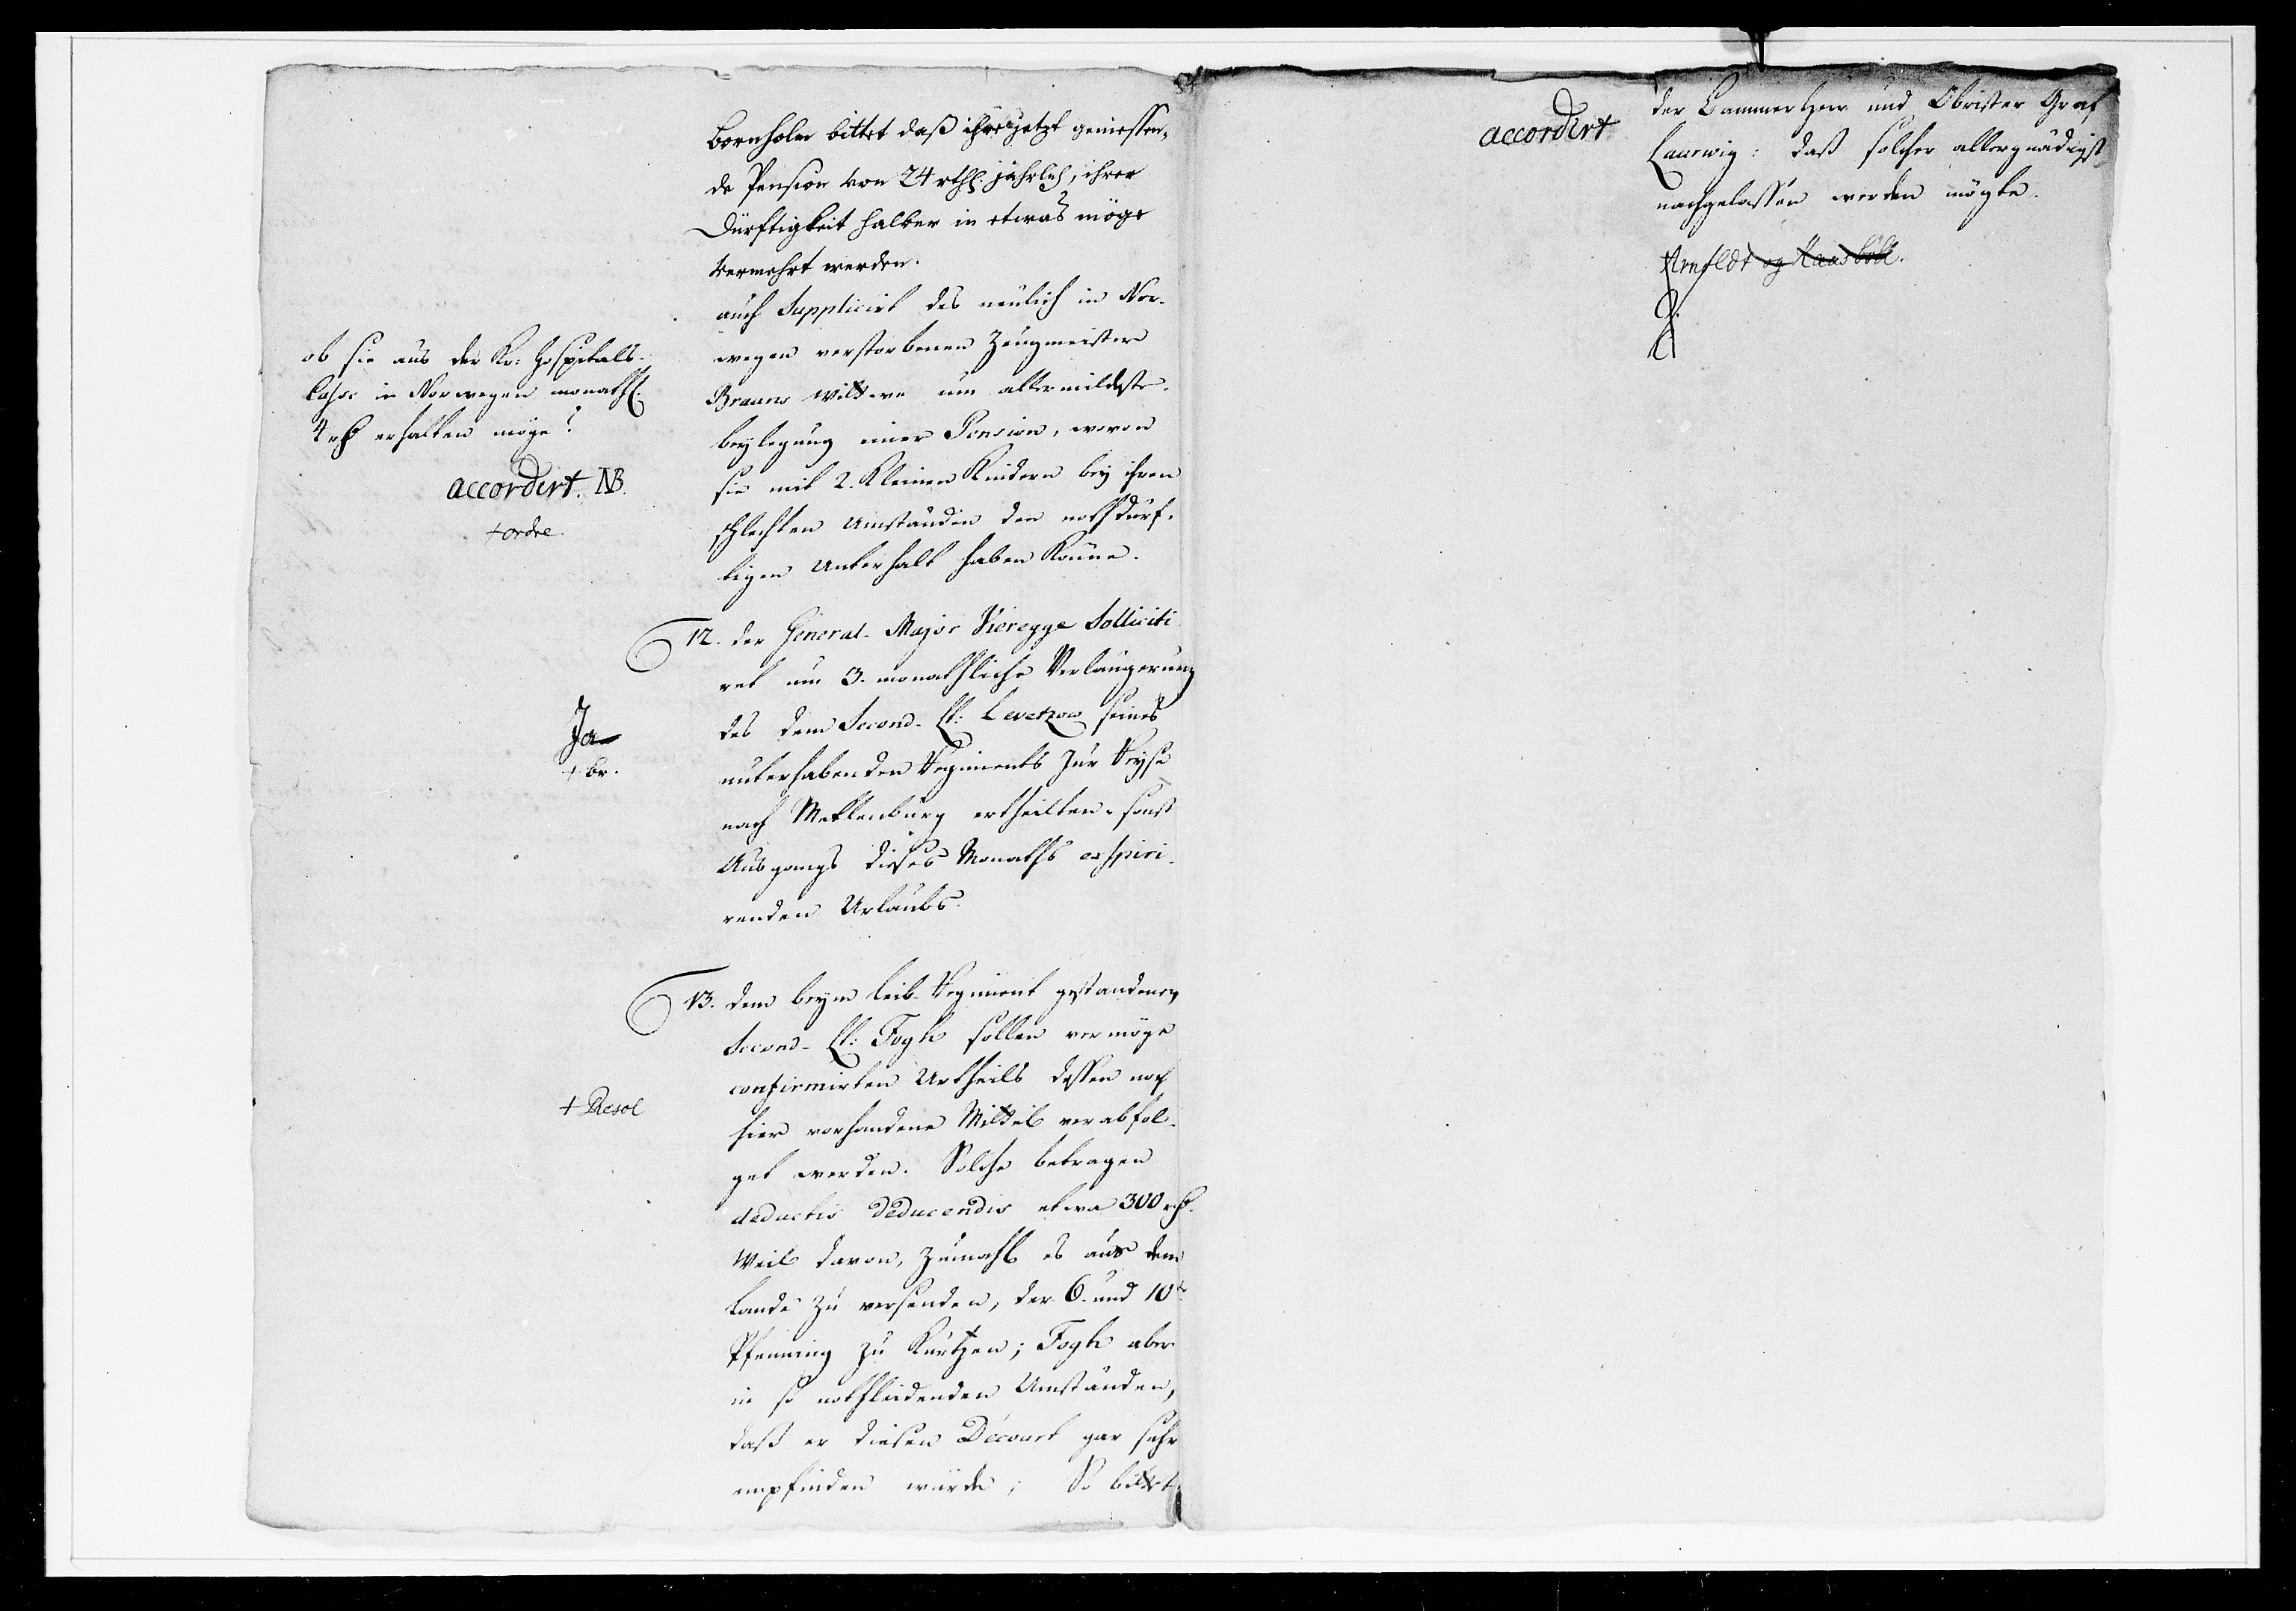 Bornholm bittet daß ihre jetzt geniessen-
de Pension von 24 rthl: jährlich, ihrer
Dürftigkeit halber in etwas möge
vermehrt werden.
auch Supplicirt des neulich in Nor-
wegen verstorbenen Zeugmeisters
Brauns Wittwe um allermildeste
beylegung einer Pension, wovon
sie mit 2. Kleinen Kindern bey ihren
schlechten Umständen den nothdürf-
tigen Unterhalt haben könne.
ob sie aus der Kr: Hospitals-
Casse in Norwegen monathl.
4 rthl erhalten möge?
accordirt. NB.
+ ordre.
12. der General-Major Vieregge Solliciti-
ret um 3. monathliche Verlängerung
des dem Second-Lt: Levetzow seines
unterhabenden Regiments zur Reyse
nach Meklenburg ertheilten, sonst
Ausgangs dieses Monaths exspiri-
renden Urlaubs.
Ja
+ br.
13. dem beym Leib-Regiment gestandenen
Second-Lt: Fogh sollen vermöge
confirmirten Urtheils dessen noch
hier vorhandene Mittel verabfol-
get werden. Solche betragen
deductis deducendis etwa 300 rthl.
Weil davon, zumahl es aus dem
Lande zu versenden, der 6. und 10te
Pfenning zu Kürtzen; Fogh aber
in so nothleidenden Umständen,
daß er diesen Decourt gar sehr
empfinden würde; So bittet
+ Resol
der Cammerherr und Obrister Graf
Laurwig: daß solcher allergnädigst
nachgelassen werden mögte.
accordirt